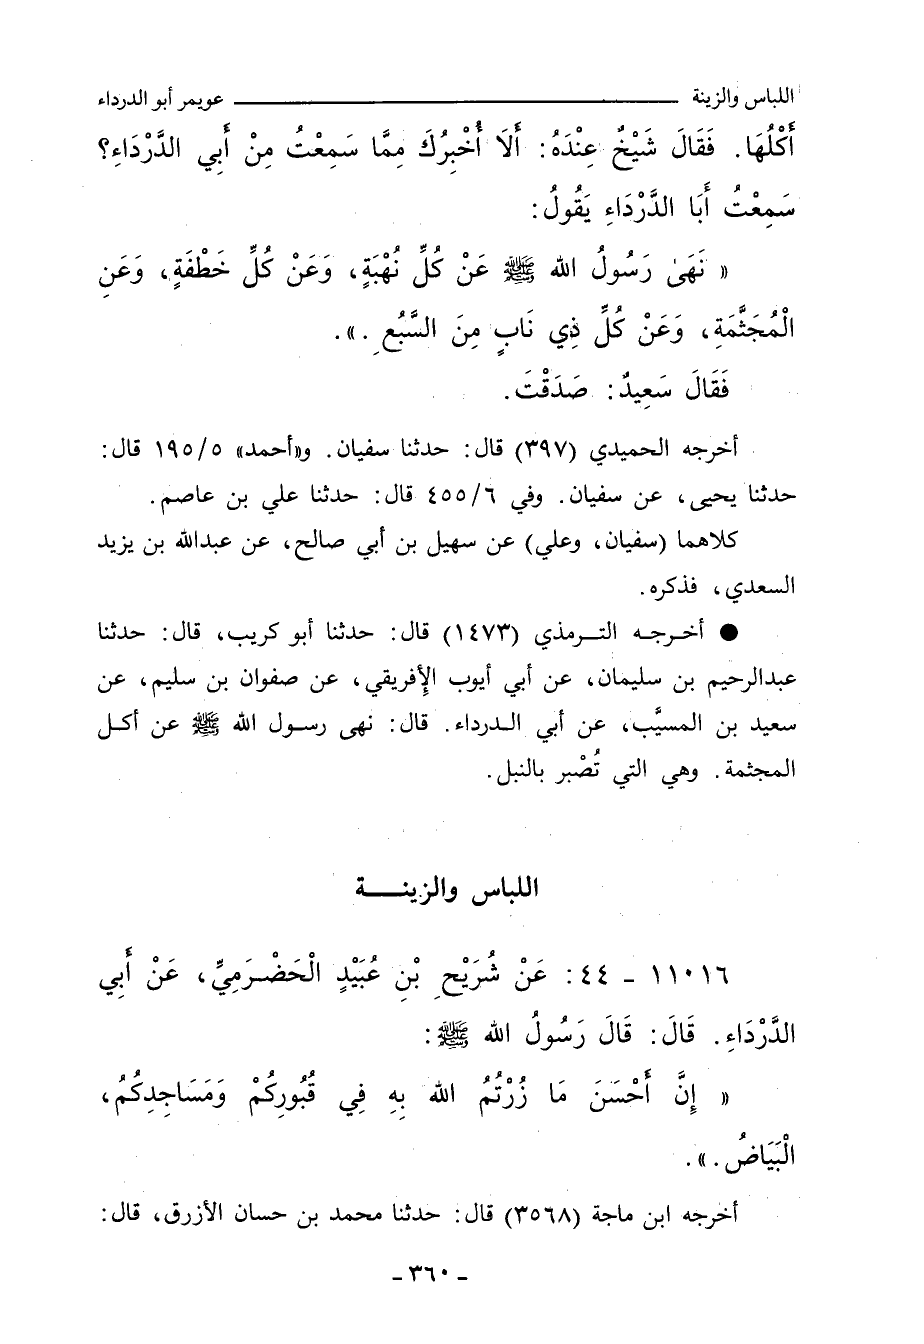 اللباس والزينة ــــــــــــــــ عويمر أبو الدرداء
أَكْلُهَا. فَقَالَ شَيْخٌ عِنْدَهُ: أَلَا أُخْبِرُكَ مِمَّا سَمِعْتُ مِنْ أَبِي الدَّرْدَاءِ؟
سَمِعْتُ أَبَا الدَّرْدَاءِ يَقُولُ:
« نَهَىٰ رَسُولُ الله ﷺ عَنْ كُلِّ نُهْبَةٍ، وَعَنْ كُلِّ خَطْفَةٍ، وَعَنِ
الْمُجَثَّمَةِ، وَعَنْ كُلِّ ذِي نَابٍ مِنَ السَّبُعِ.».
فَقَالَ سَعِيدٌ: صَدَقْتَ.
أخرجه الحميدي (٣٩٧) قال: حدثنا سفيان. و«أحمد» ١٩٥/٥ قال:
حدثنا يحيى، عن سفيان. وفي ٤٥٥/٦ قال: حدثنا علي بن عاصم.
كلاهما (سفيان، وعلي) عن سهيل بن أبي صالح، عن عبدالله بن يزيد
السعدي، فذكره.
● أخرجه الترمذي (١٤٧٣) قال: حدثنا أبو كريب، قال: حدثنا
عبدالرحيم بن سليمان، عن أبي أيوب الإفريقي، عن صفوان بن سليم، عن
سعيد بن المسيَّب، عن أبي الدرداء. قال: نهى رسول الله ﷺ عن أكل
المجثمة. وهي التي تُصْبر بالنبل.
اللباس والزينة
١١٠١٦ - ٤٤: عَنْ شُرَيْحِ بْنِ عُبَيْدٍ الْحَضْرَمِيِّ، عَنْ أَبِي
الدَّرْدَاءِ. قَالَ: قَالَ رَسُولُ الله ﷺ:
« إِنَّ أَحْسَنَ مَا زُرْتُمُ الله بِهِ فِي قُبُورِكُمْ وَمَسَاجِدِكُمُ،
الْبَيَاضُ.».
أخرجه ابن ماجة (٣٥٦٨) قال: حدثنا محمد بن حسان الأزرق، قال:
- ٣٦٠ -